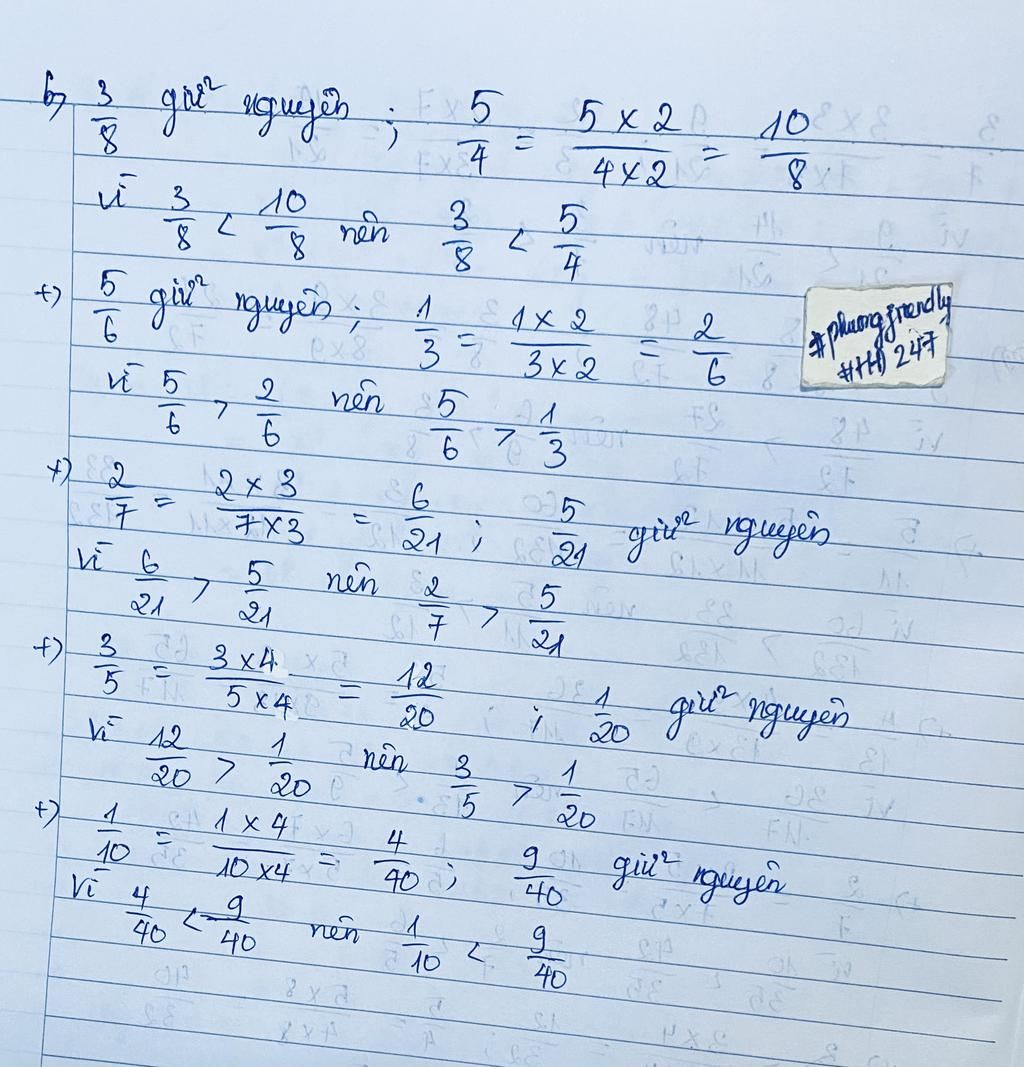 b, 3/8 giữ nguyên ; 5/4 = 5 x 2 / 4 x 2 = 10/8
Vì 3/8 < 10/8 nên 3/8 < 5/4
+) 5/6 giữ nguyên ; 1/3 = 1 x 2 / 3 x 2 = 2/6
Vì 5/6 > 2/6 nên 5/6 > 1/3
#phuongfriendly
247
+) 2/7 = 2 x 3 / 7 x 3 = 6/21 ; 5/21 giữ nguyên
Vì 6/21 > 5/21 nên 2/7 > 5/21
+) 3/5 = 3 x 4 / 5 x 4 = 12/20 ; 1/20 giữ nguyên
Vì 12/20 > 1/20 nên 3/5 > 1/20
+) 1/10 = 1 x 4 / 10 x 4 = 4/40 ; 9/40 giữ nguyên
Vì 4/40 < 9/40 nên 1/10 < 9/40